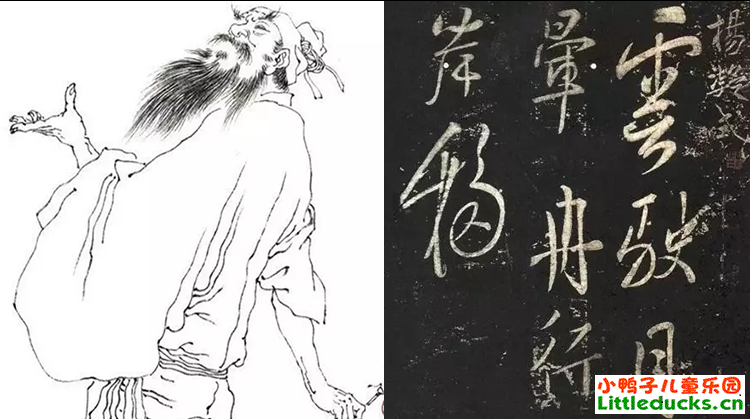 楊凝式
雲駛月
暈舟行
岸移
小鸭子儿童乐园
Littleducks.cn